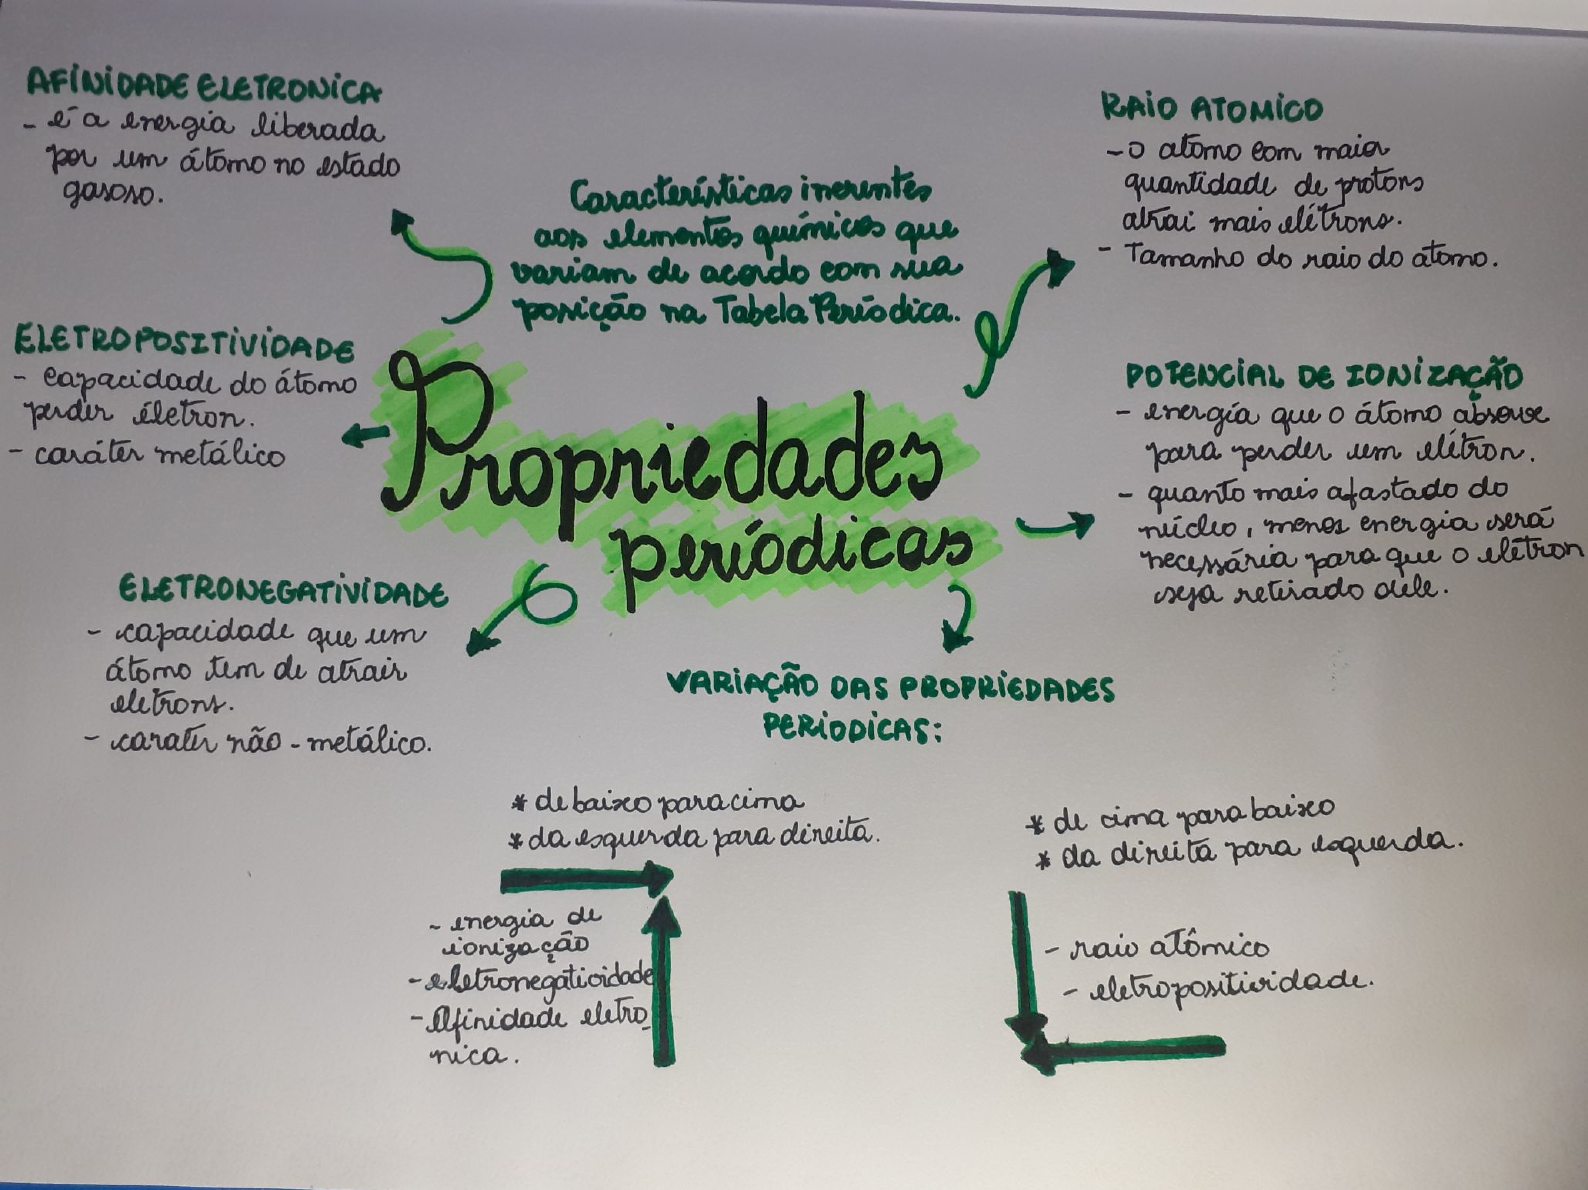 AFINIDADE ELETRONICA
- é a energia liberada
por um átomo no estado
gasoso.
ELETROPOSITIVIDADE
- capacidade do átomo
perder életron.
- caráter metálico
ELETRONEGATIVIDADE
- capacidade que um
átomo tem de atrair
eletrons.
- caratér não-metálico.
Características inerentes
aos elementos químicos que
variam de acordo com sua
posição na Tabela Periódica.
Propriedades
periódicas
RAIO ATOMICO
- o atomo com maior
quantidade de protons
atrai mais elétrons.
- Tamanho do raio do átomo.
POTENCIAL DE IONIZAÇÃO
- energia que o átomo absorve
para perder um elétron.
- quanto mais afastado do
núcleo, menos energia será
necessária para que o elétron
seja retirado dele.
VARIAÇÃO DAS PROPRIEDADES
PERIODICAS:
* de baixo para cima
* da esquerda para direita.
- energia de
ionização
- eletronegatividade
- Afinidade eletro_
nica.
* de cima para baixo
* da direita para esquerda.
- raio atômico
- eletropositividade.